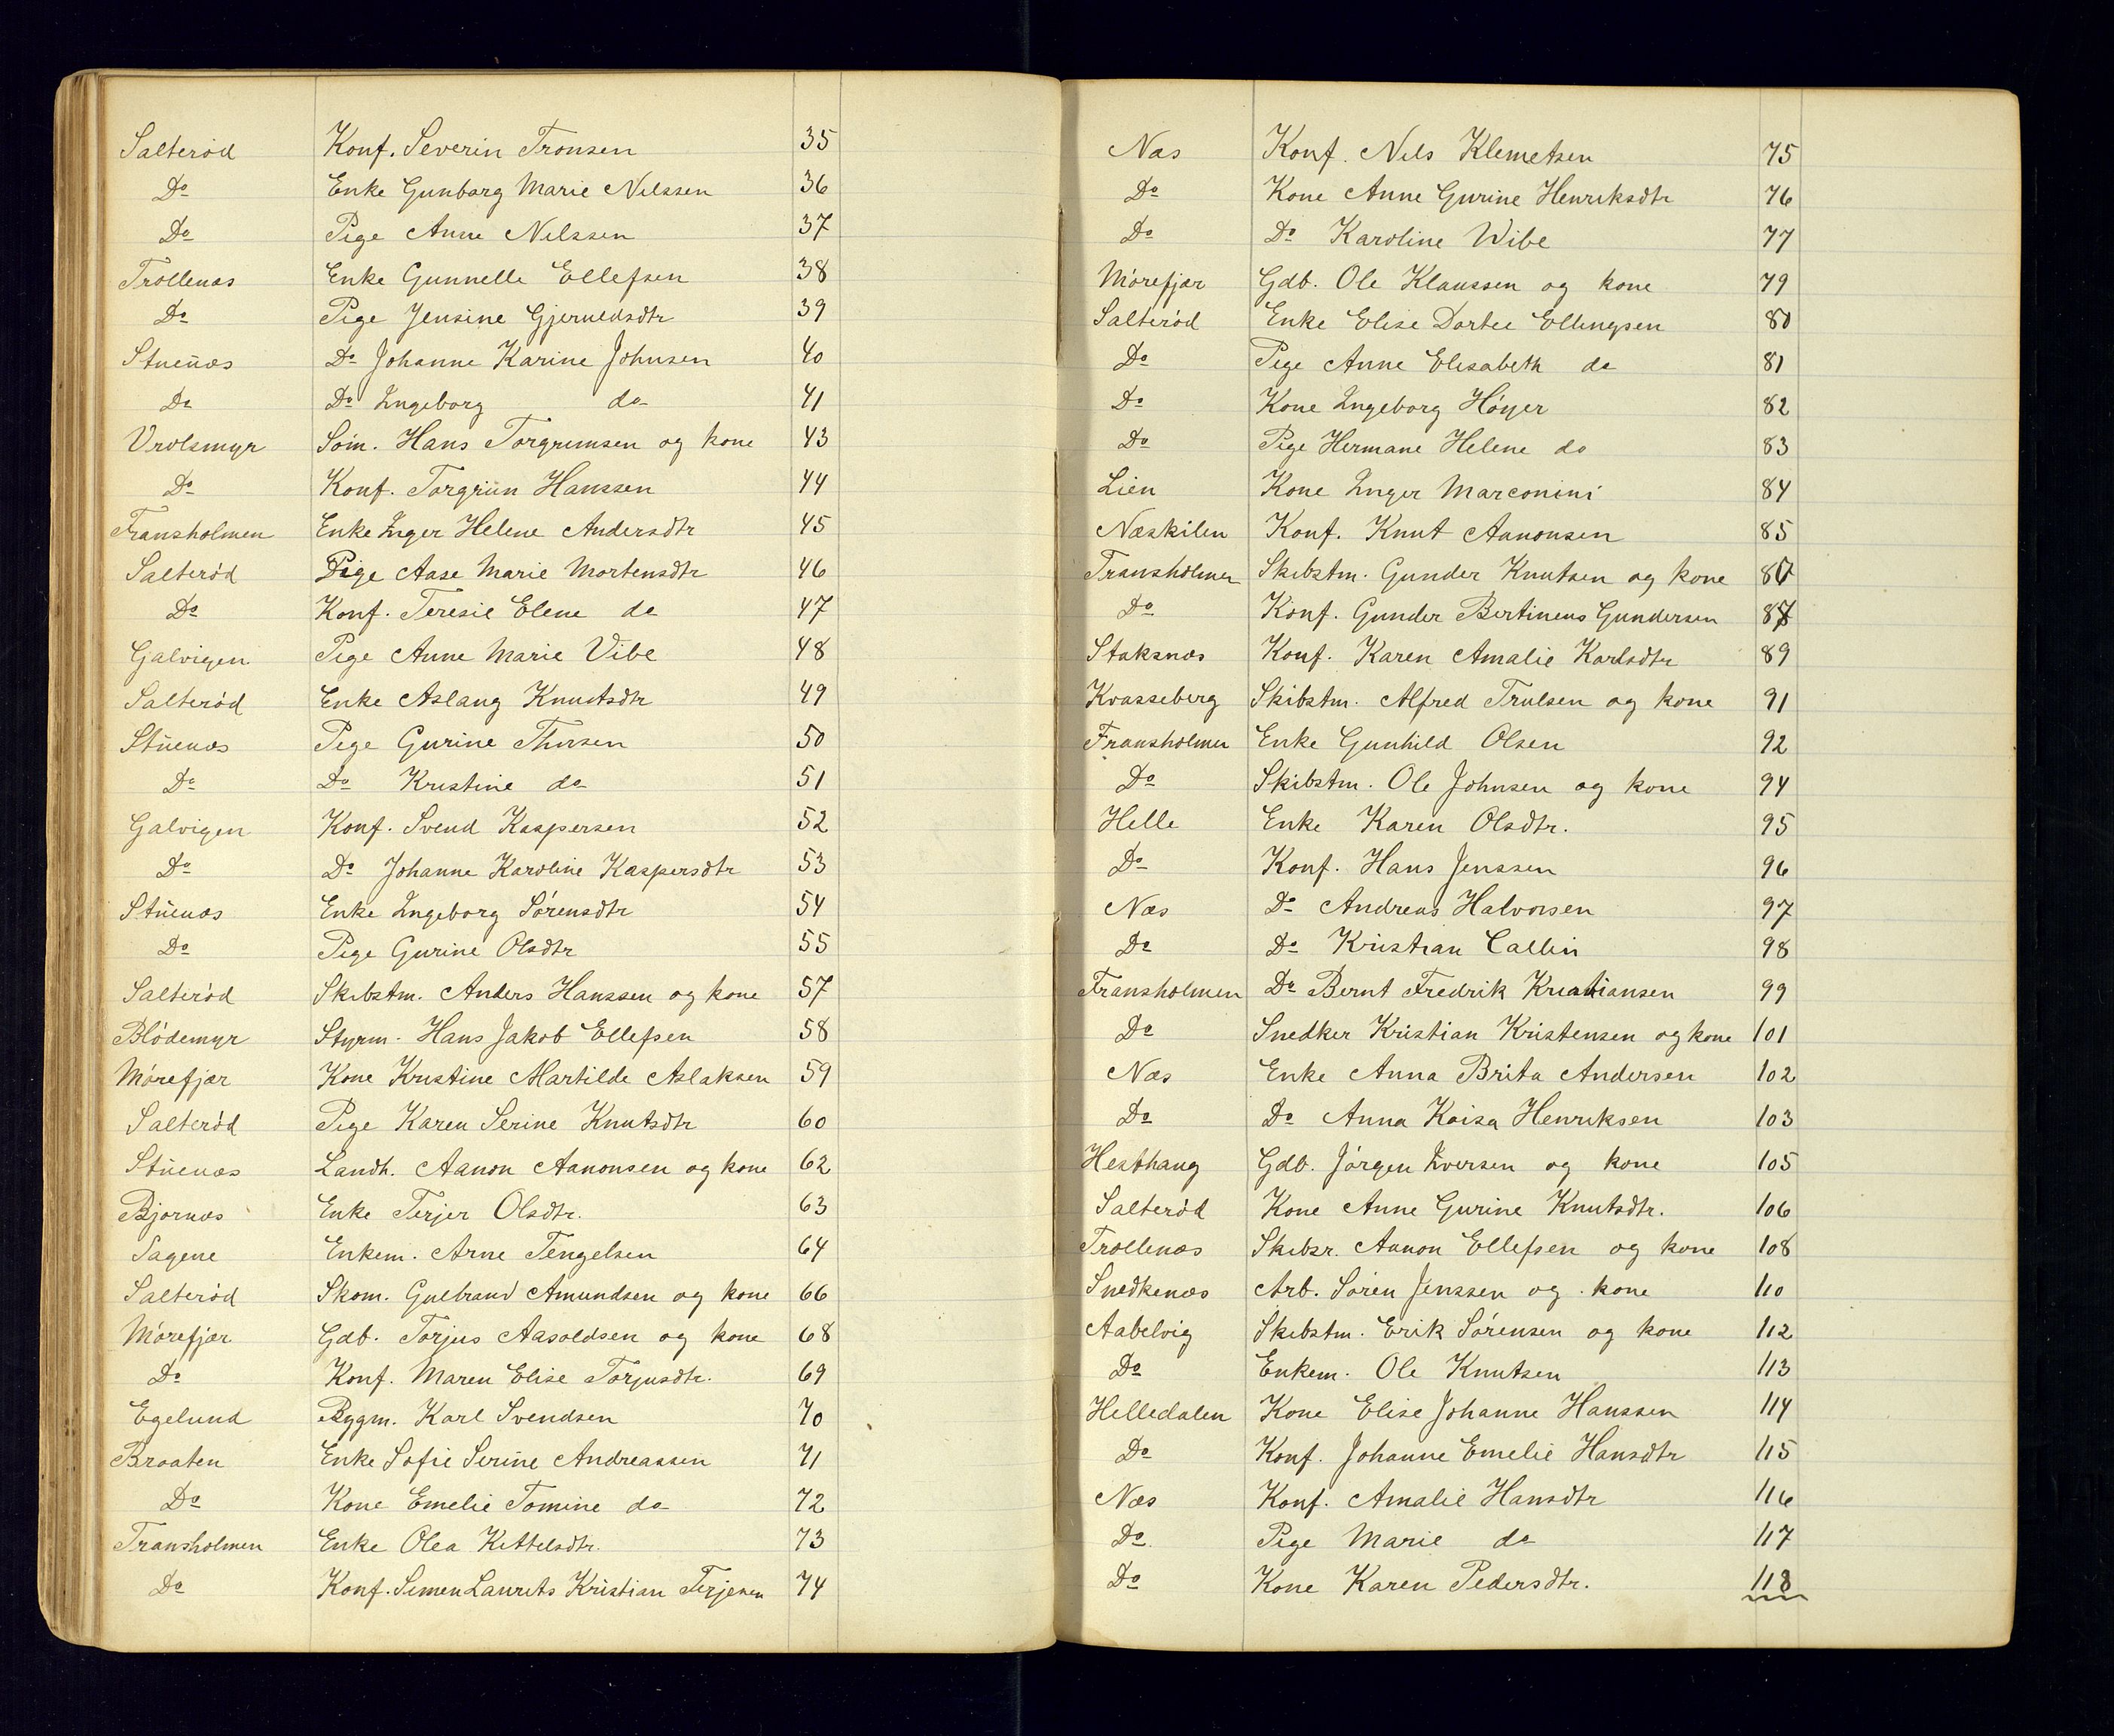 Salterød Konf. Severin Tronsen 35
Do Enke Gunborg Marie Nilssen 36
Do Pige Anne Nilssen 37
Trollenæs Enke Gunnelle Ellefsen 38
Do Pige Jensine Gjeruldsdtr 39
Stuenæs Do Johanne Karine Johnsen 40
Do Do Ingeborg do 41
Vrolsmyr Søm. Hans Torgrimsen og kone 43
Do Konf. Torgrim Hanssen 44
Fransholmen Enke Inger Helene Andersdtr 45
Salterød Pige Aase Marie Mortensdtr 46
Do Konf. Teresie Elene do 47
Galvigen Pige Anne Marie Vibe 48
Salterød Enke Aslaug Knutsdtr 49
Stuenæs Pige Gurine Thorsen 50
Do Do Kristine do 51
Galvigen Konf. Svend Kaspersen 52
Do Do Johanne Karoline Kaspersdtr 53
Stuenæs Enke Ingeborg Sørensdtr 54
Do Pige Gurine Olsdtr 55
Salterød Skibstm. Anders Hanssen og kone 57
Blødemyr Styrm. Hans Jakob Ellefsen 58
Mørefjær Kone Kristine Martilde Aslaksen 59
Salterød Pige Karen Serine Knutsdtr 60
Stuenæs Landh. Aanon Aanonsen og kone 62
Bjornæs Enke Terjer Olsdtr. 63
Sagene Enkem. Arne Tengelsen 64
Salterød Skom. Gulbrand Amundsen og kone 66
Mørefjær Gdb. Torjus Aasoldsen og kone 68
Do Konf. Maren Elise Torjusdtr. 69
Egelund Bygm. Karl Svendsen 70
Braaten Enke Sofie Serine Andreassen 71
Do Kone Emelie Tomine do 72
Fransholmen Enke Olea Kittelsdtr. 73
Do Konf. Simen Laurits Kristian Terjesen 74
Næs Konf. Nils Klemetsen 75
Do Kone Anne Gurine Henriksdtr 76
Do Do Karoline Wibe 77
Mørefjær Gdb. Ole Klaussen og kone 79
Salterød Enke Elise Dortee Ellingsen 80
Do Pige Anne Elisabeth do 81
Do Kone Ingeborg Høyer 82
Do Pige Hermane Helene do 83
Lien Kone Inger Marconini 84
Næskilen Konf. Knut Aanonsen 85
Fransholmen Skibstm. Gunder Knutsen og kone 87
Do Konf. Gunder Bertineus Gundersen 88
Staksnæs Konf. Karen Amalie Karlsdtr 89
Kvasseberg Skibstm. Alfred Trulsen og kone 91
Fransholmen Enke Gunhild Olsen 92
Do Skibstm. Ole Johnsen og kone 94
Helle Enke Karen Olsdtr. 95
Do Konf. Hans Jenssen 96
Næs Do Andreas Halvorsen 97
Do Do Kristian Callin 98
Fransholmen Do Bernt Fredrik Kristiansen 99
Do Snedker Kristian Kristensen og kone 101
Næs Enke Anna Brita Andersen 102
Do Do Anna Kaisa Henriksen 103
Hesthaug Gdb. Jørgen Iversen og kone 105
Salterød Kone Anne Gurine Knutsdtr. 106
Trollenæs Skibsr. Aanon Ellefsen og kone 108
Snedkenæs Arb. Søren Jenssen og kone 110
Aabelvig Skibstm. Erik Sørensen og kone 112
Do Enkem. Ole Knutsen 113
Helledalen Kone Elise Johanne Hanssen 114
Do Konf. Johanne Emelie Hansdtr 115
Næs Konf. Amalie Hansdtr 116
Do Pige Marie do 117
Do Kone Karen Pedersdtr. 118